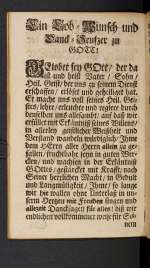 Ein Lob-Wunsch und
Danck-Seufzer zu
GOTT:
GElobet sey GOtt, der da
ist und heist Vater, Sohn,
Heil. Geist, der uns zu seinem Dienst
erschaffen, erlöset und geheiliget hat.
Er mache uns voll seines Heil. Gei-
stes, lehre, erleuchte und regiere durch
denselben uns allesamt, auf daß wir
erfüllet mit Erkäntniß seines Willens
in allerley geistlicher Weißheit und
Verstand wandeln würdiglich Ihme
dem HErrn aller Herrn allein zu ge-
fallen, fruchtbahr seyn in guten Wer-
cken, und wachsen in der Erkäntniß
GOttes, gestärcket mit Krafft, nach
Seiner herrlichen Macht, in Gedult
und Langmüthigkeit, Ihme, so lange
wir hie wallen ohne Unterlaß in un-
serm Hertzen mit Freuden singen und
allezeit Dancksagen für alles, biß wir
endlichen vollkommener weise für Sei-
nem